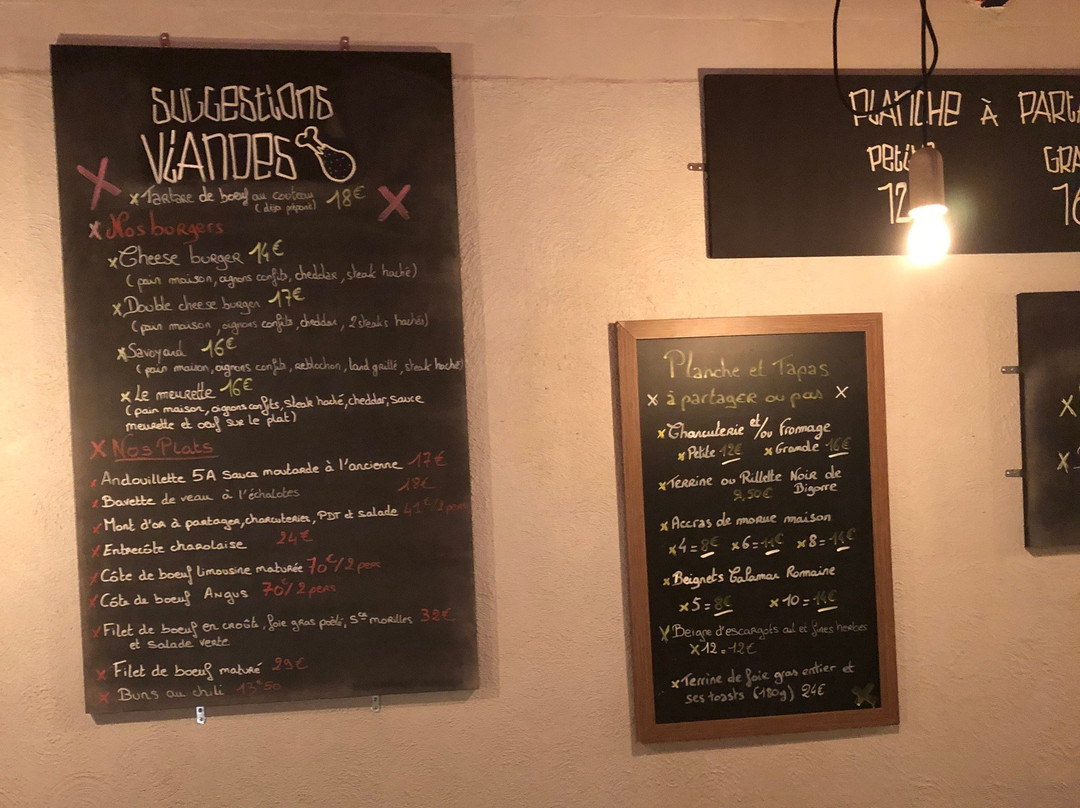 SUGGESTIONS
VIANDES
x Tartare de boeuf au couteau 18€
(déjà préparé)
x Nos burgers
x Cheese burger 14€
(pain maison, oignons confits, cheddar, steak haché)
x Double cheese burger 17€
(pain maison, oignons confits, cheddar, 2 steaks hachés)
x Savoyard 16€
(pain maison, oignons confits, reblochon, lard grillé, steak haché)
x Le meurette 16€
(pain maison, oignons confits, steak haché, cheddar, sauce
meurette et oeuf sur le plat)
x Nos Plats
x Andouillette 5A Sauce moutarde à l'ancienne 17€
x Bavette de veau à l'échalotes 18€
x Mont d'or à partager, charcuteries, PDT et salade 41€/2 pers
x Entrecôte charolaise 24€
x Côte de boeuf limousine maturée 70€/2 pers
x Côte de boeuf Angus 70€/2 pers
x Filet de boeuf en croûte, foie gras poêlé, Sce morilles 32€
et salade verte
x Filet de boeuf maturé 29€
x Buns au chili 13€50
PLANCHE À PARTA
Petite
12
GRA
16
Planche et Tapas
x à partager ou pas x
x Charcuterie et/ou Fromage
x Petite 12€ x Grande 16€
x Terrine ou Rillette Noir de
9,50€ Bigorre
x Accras de morue maison
x 4 = 8€ x 6 = 11€ x 8 = 14€
x Beignets Calamar Romaine
x 5 = 8€ x 10 = 14€
x Beigne d'escargots ail et fines herbes
x 12 = 12€
x Terrine de foie gras entier et
ses toasts (180g) 24€
x
x